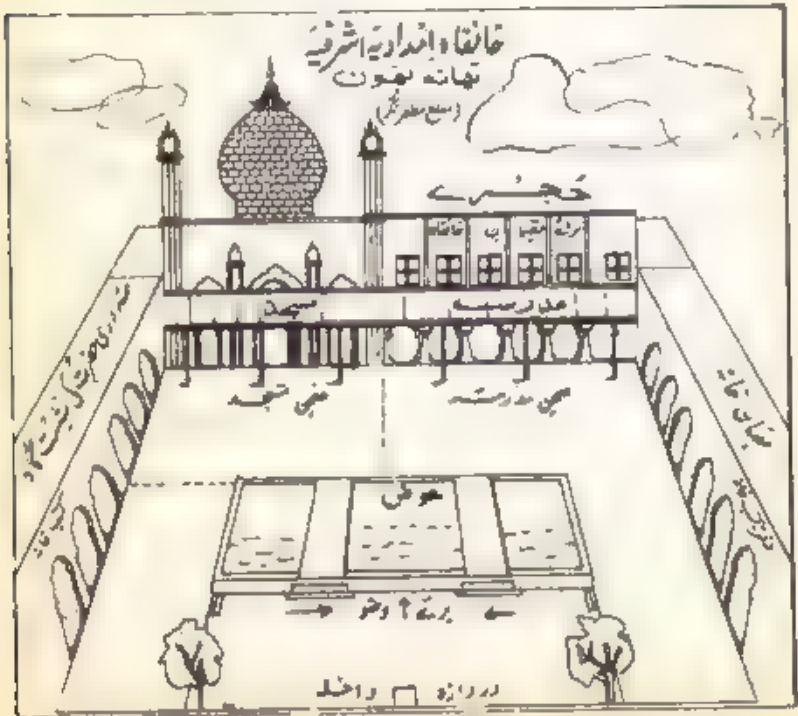 خانقاہ امدادیہ اشرفیہ
تھانہ بھون
(ضلع مظفر نگر)
حجرے
خانقاہ
مسجد
مدرسہ
صحن مسجد
صحن مدرسہ
سہ دری حضرت کی نشست گاہ
حوض
برائے وضو
دروازہ داخلہ